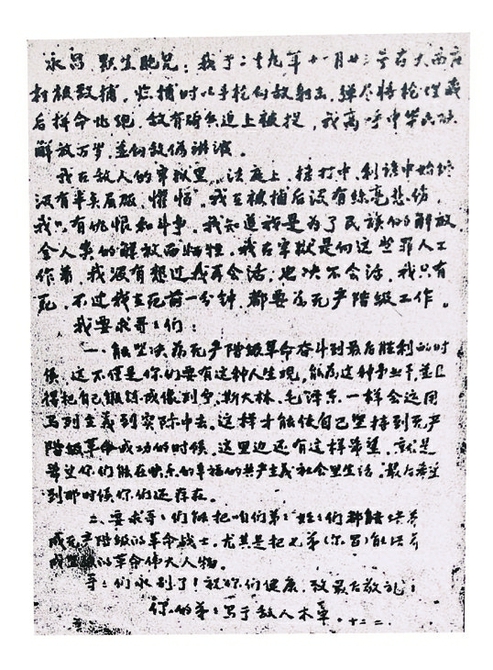 永昌、默生胞兄：我于二十九年十一月廿三号在大西庄
村被敌捕，临捕时以手枪向敌射击，弹尽将枪埋藏
后拼命逃跑，敌有骑兵追上被捉，我高呼中华民族
解放万岁，并向敌伪讲演。
我在敌人的牢狱里，法庭上，拷打中，利诱中始终
没有半点屈服、惧怕。我在被捕后没有丝毫悲伤，
我只有仇恨和斗争。我知道我是为了民族的解放
全人类的解放而牺牲。我在牢狱是向这些罪人工
作着，我没有想过我再会活，也决不会活，我只有
死，不过我在死前一分钟，都要为无产阶级工作。
我要求哥：们：
一、能坚决为无产阶级革命奋斗到最后胜利的时
候，这不仅是你们要有这种人生观，能为这种事业干，并且
得把自己锻炼成像列宁、斯大林、毛泽东一样会运用
马列主义到实际中去，这样才能使自己坚持到无产
阶级革命成功的时候，这里边还有这样希望，就是
希望你们能在快乐的幸福的共产主义社会里生活，最后希望
到那时候你们还存在。
二、要求哥：们能把咱们弟：姪：们都能培养
成无产阶级的革命战士，尤其是把七弟（尔昌）能培养
成坚强的革命伟大人物。
哥：们永别了！祝你们健康，致最后敬礼！
你的弟：写于敌人木牢。十二.二.